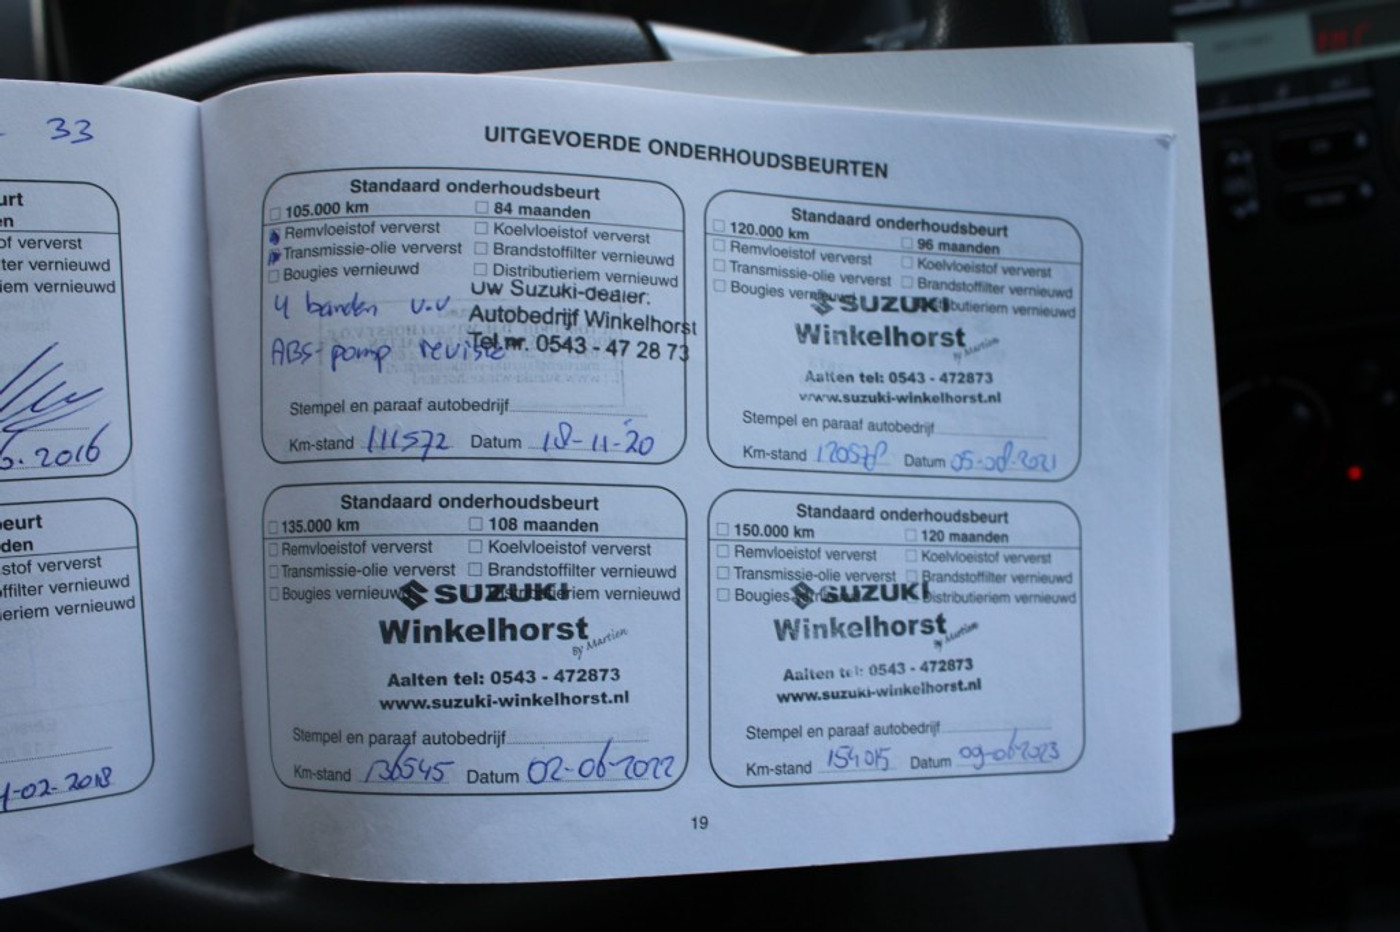 33
urt
en
of ververst
ter vernieuwd
iem vernieuwd
.2016
eurt
den
stof ververst
ffilter vernieuwd
eriem vernieuwd
-02-2018
UITGEVOERDE ONDERHOUDSBEURTEN
Standaard onderhoudsbeurt
105.000 km 84 maanden
Remvloeistof ververst Koelvloeistof ververst
Transmissie-olie ververst Brandstoffilter vernieuwd
Bougies vernieuwd Distributieriem vernieuwd
4 banden v.v
ABS-pomp revisie
Uw Suzuki-dealer:
Autobedrijf Winkelhorst
Tel.nr. 0543 - 47 28 73
Stempel en paraaf autobedrijf
Km-stand 111572 Datum 18-11-20
Standaard onderhoudsbeurt
120.000 km 96 maanden
Remvloeistof ververst Koelvloeistof ververst
Transmissie-olie ververst Brandstoffilter vernieuwd
Bougies vernieuwd Distributieriem vernieuwd
SUZUKI
Winkelhorst
by Martien
Aalten tel: 0543 - 472873
www.suzuki-winkelhorst.nl
Stempel en paraaf autobedrijf
Km-stand 120578 Datum 05-08-2021
Standaard onderhoudsbeurt
135.000 km 108 maanden
Remvloeistof ververst Koelvloeistof ververst
Transmissie-olie ververst Brandstoffilter vernieuwd
Bougies vernieuwd Distributieriem vernieuwd
SUZUKI
Winkelhorst
by Martien
Aalten tel: 0543 - 472873
www.suzuki-winkelhorst.nl
Stempel en paraaf autobedrijf
Km-stand 136545 Datum 02-06-2022
Standaard onderhoudsbeurt
150.000 km 120 maanden
Remvloeistof ververst Koelvloeistof ververst
Transmissie-olie ververst Brandstoffilter vernieuwd
Bougies vernieuwd Distributieriem vernieuwd
SUZUKI
Winkelhorst
by Martien
Aalten tel: 0543 - 472873
www.suzuki-winkelhorst.nl
Stempel en paraaf autobedrijf
Km-stand 154015 Datum 09-06-2023
19